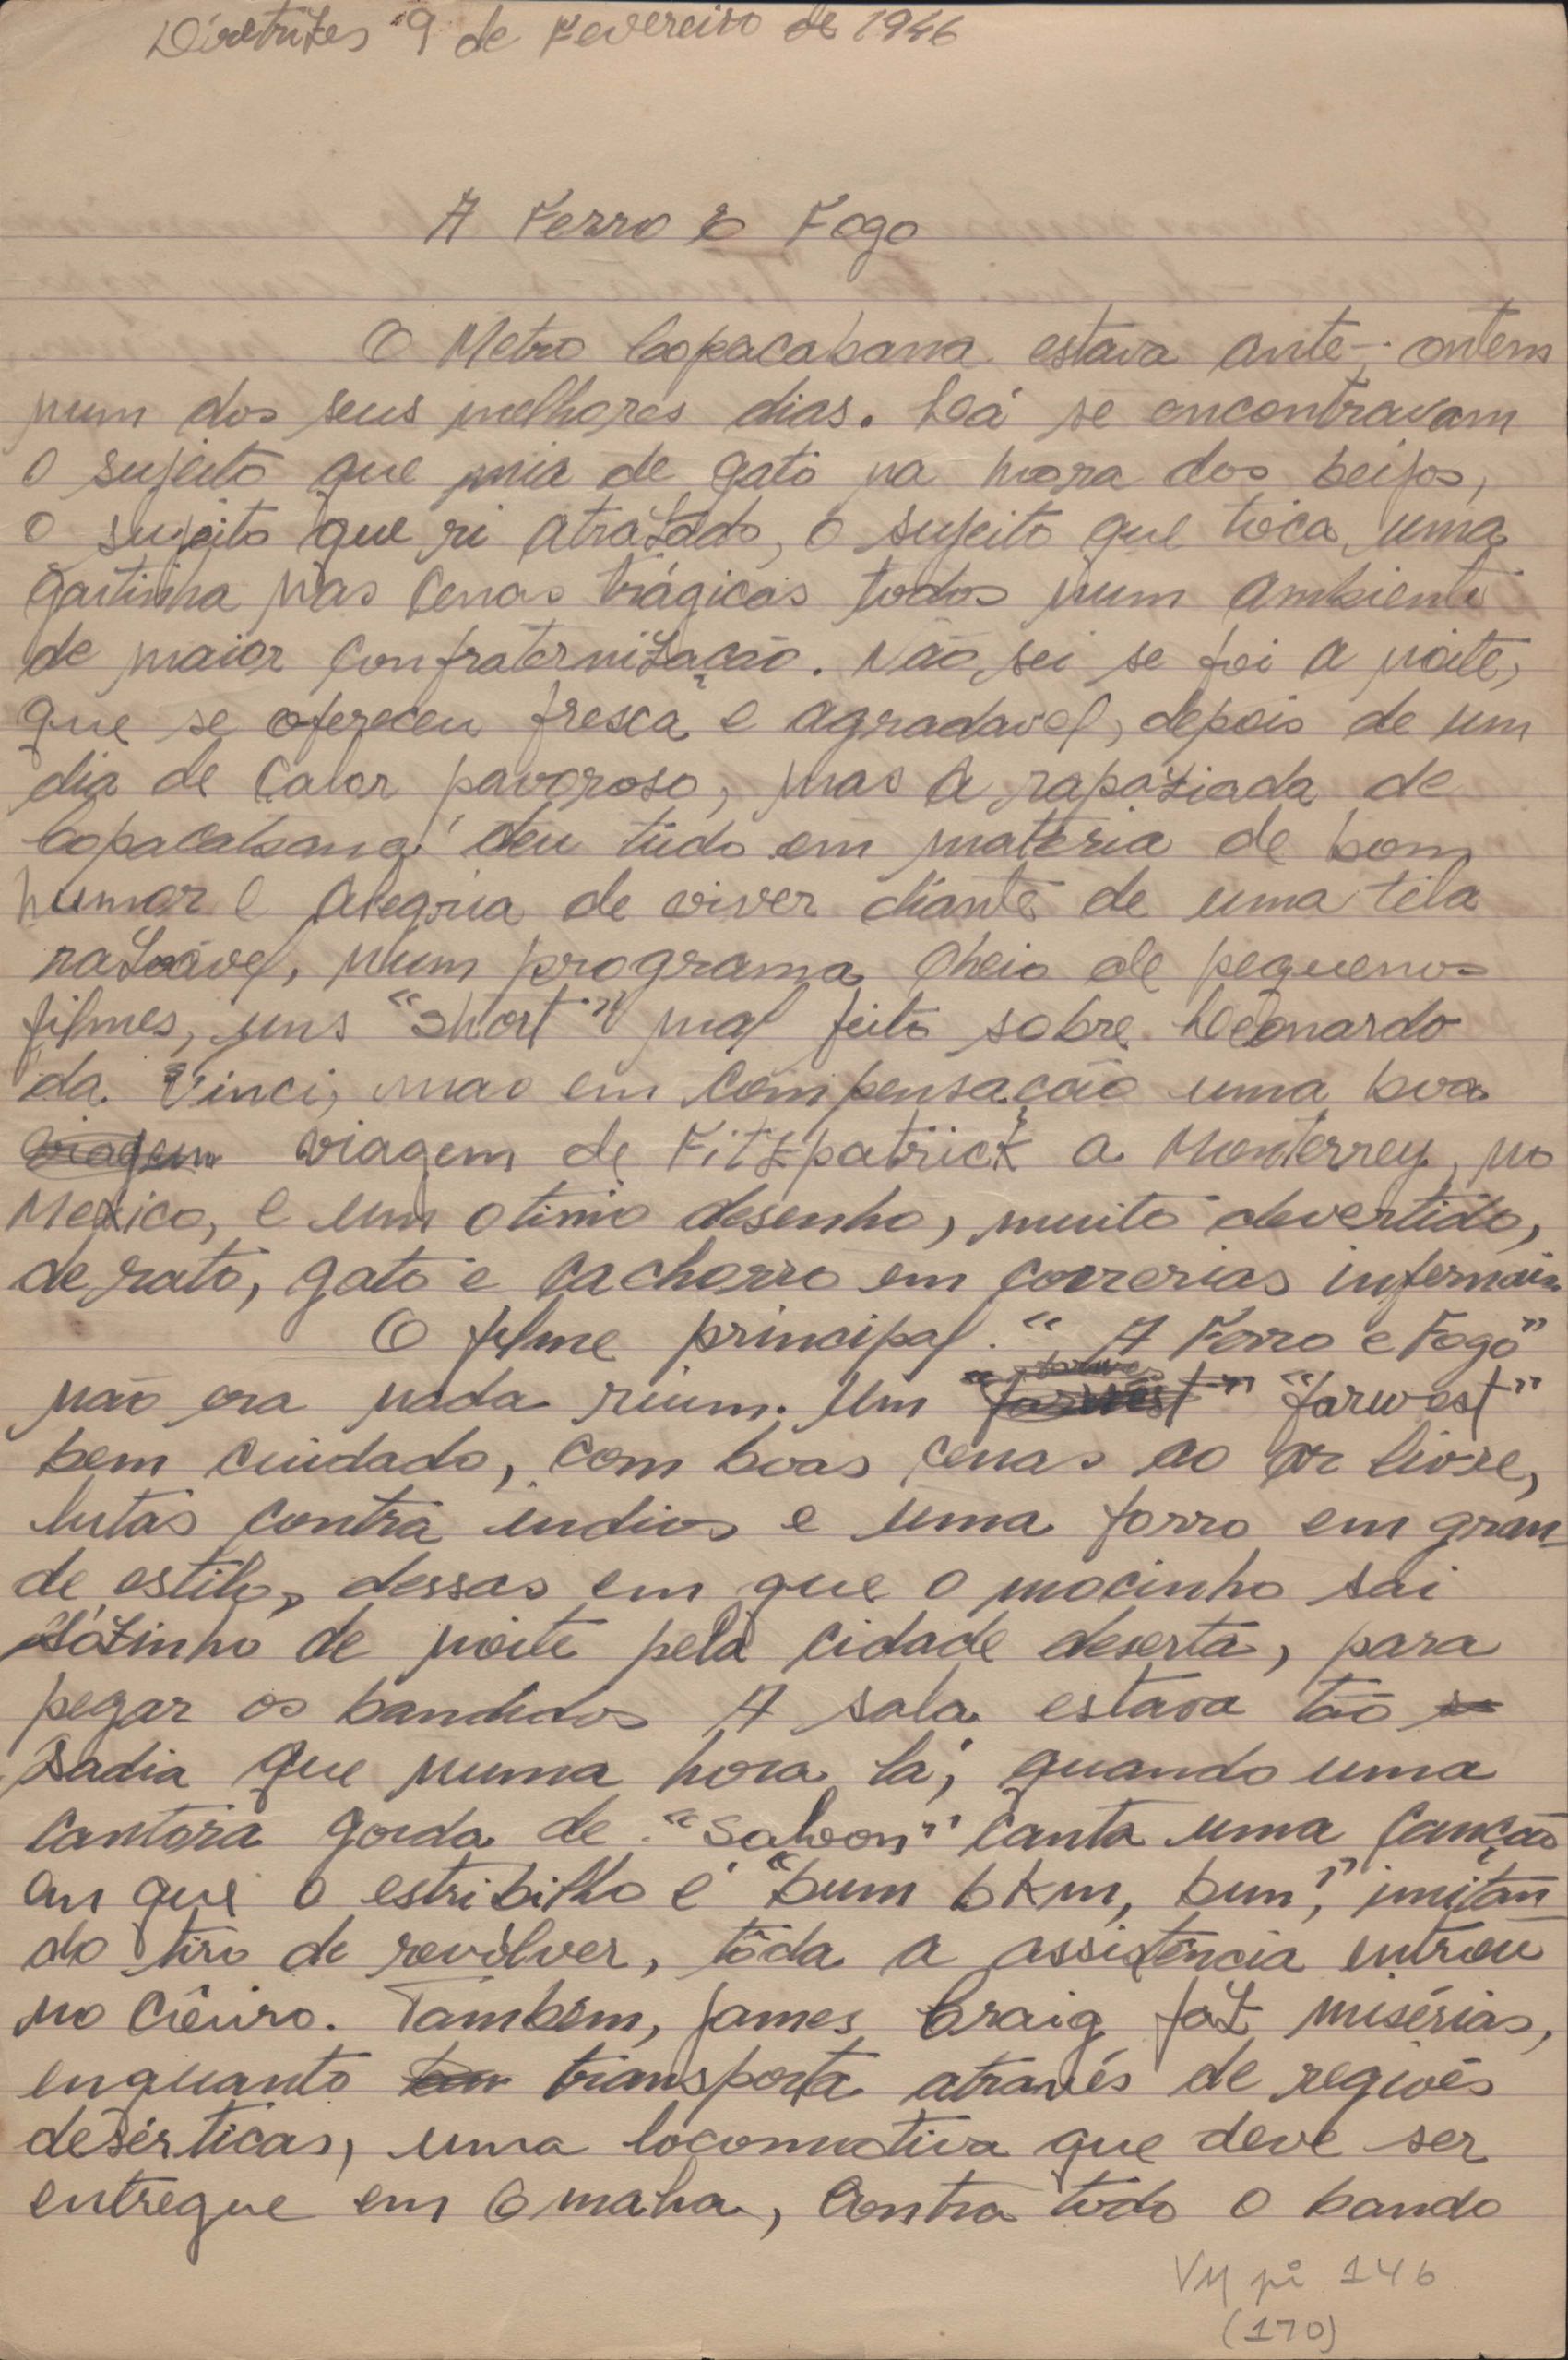 Diretrizes 9 de Fevereiro de 1946
A Ferro e Fogo
O Metro Copacabana estava ante-ontem
num dos seus melhores dias. Lá se encontravam
o sujeito que mia de gato na hora dos beijos,
o sujeito que ri atrazado, o sujeito que toca uma
gaitinha nas cenas trágicas todos num ambiente
de maior confraternização. Não sei se foi a noite,
que se ofereceu fresca e agradavel, depois de um
dia de calor pavoroso, mas a rapaziada de
Copacabana deu tudo em materia de bom
humor e alegria de viver diante de uma tela
razoável, num programa cheio de pequenos
filmes, uns "short" mal feito sobre Leonardo
da Vinci, mas em compensação uma boa
viagem viagem de Fitzpatrick a Monterrey, no
Mexico, e um otimo desenho, muito divertido,
de rato, gato e cachorro em correrias infernais.
O filme principal "A Ferro e Fogo"
não era nada ruim. Um "farwest" "farwest"
bem cuidado, com boas cenas ao ar livre,
lutas contra indios e uma forro em gran-
de estilo, dessas em que o mocinho sai
sózinho de noite pela cidade deserta, para
pegar os bandidos A sala estava tão
sadia que numa hora lá, quando uma
cantora gorda de "saloon" canta uma canção
em que o estribilho é "bum bum, bum", imitan-
do tiro de revólver, tôda a assistência entrou
no côuro. Tambem, James Craig faz misérias,
enquanto transporta através de regiões
desérticas, uma locomotiva que deve ser
entregue em Omaha, contra todo o bando
VM pi 146
(170)